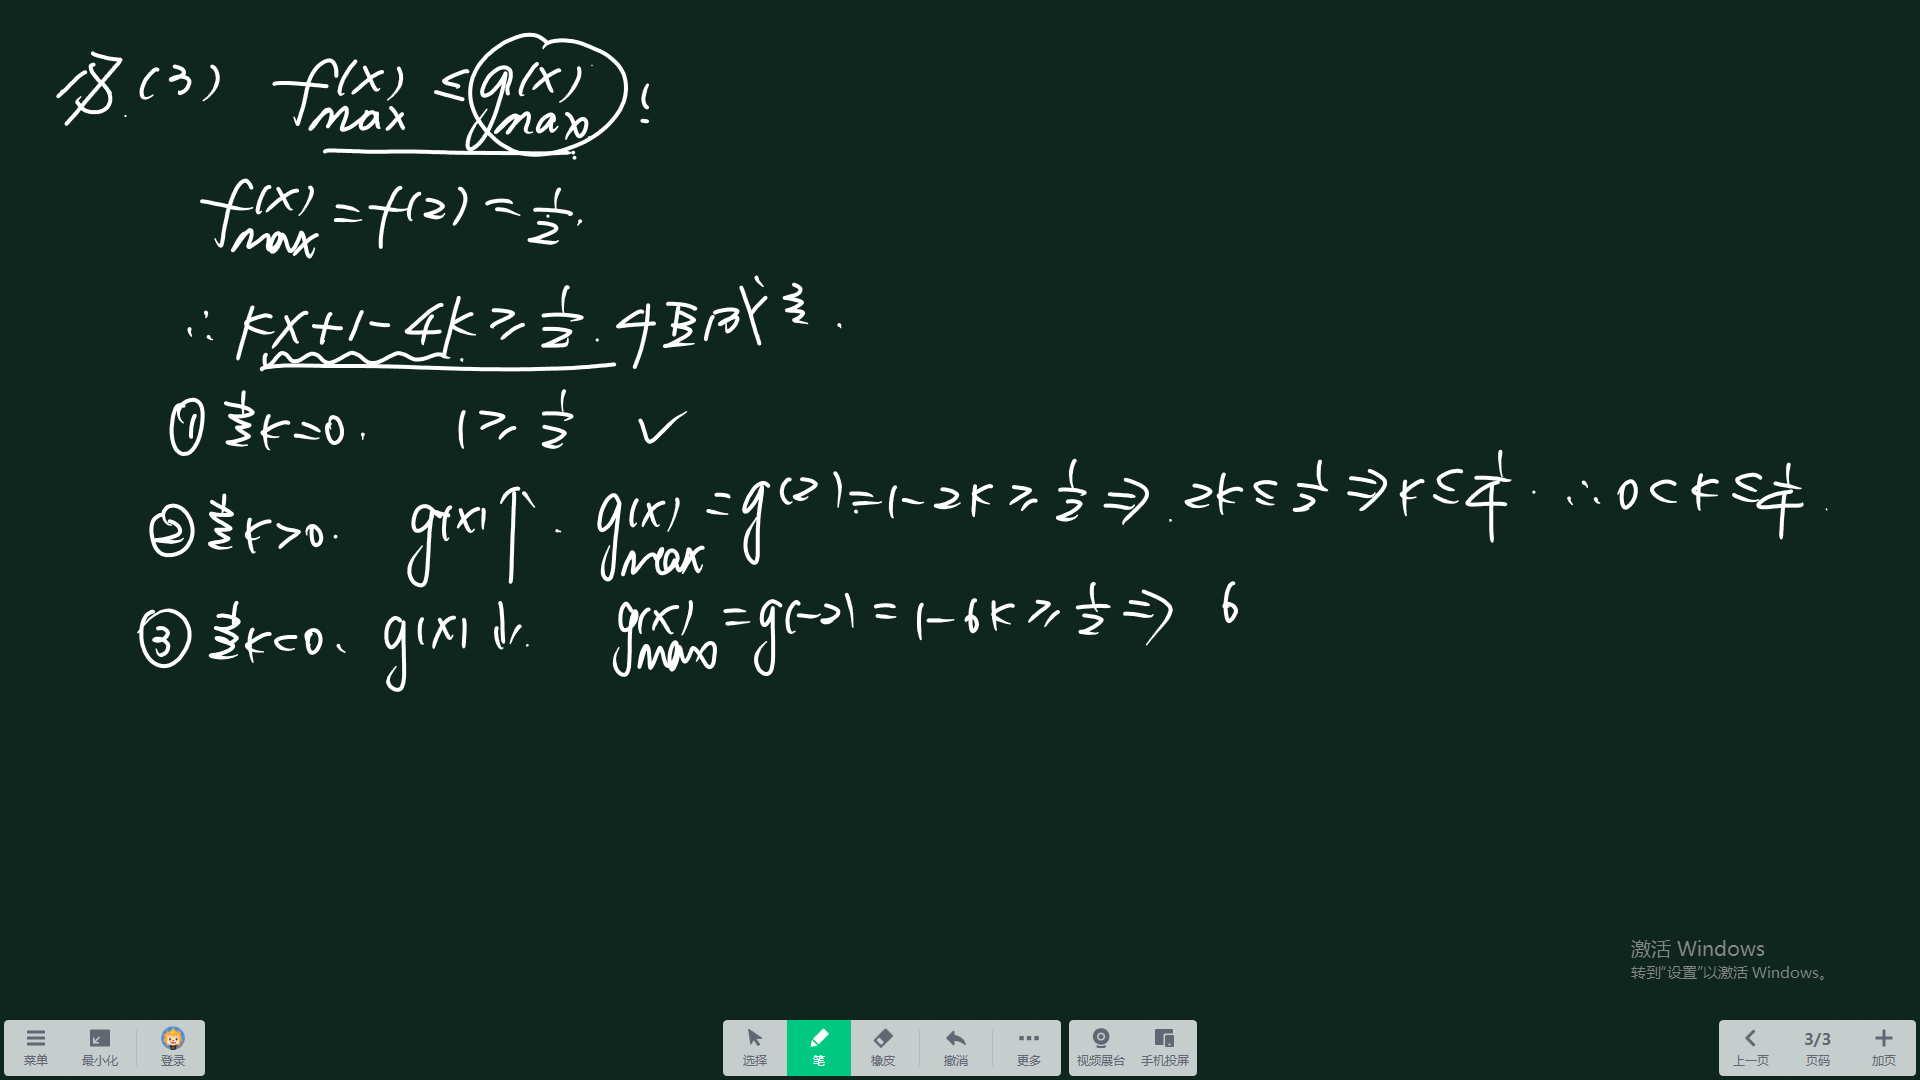 (3) f(x)max ≤ g(x)max !
f(x)max = f(2) = 1/2.
∴ kx+1-4k ≥ 1/2.
① 当k=0. 1 ≥ 1/2 ✓
② 当k>0. g(x)↑. g(x)max = g(2) = 1-2k ≥ 1/2 ⇒ 2k ≤ 1/2 ⇒ k ≤ 1/4. ∴ 0<k≤1/4.
③ 当k<0、g(x)↓. g(x)max = g(-2) = 1-6k ≥ 1/2 ⇒ 6
激活 Windows
转到“设置”以激活 Windows。
菜单 最小化 登录 选择 笔 橡皮 撤消 更多 视频展台 手机投屏 上一页 3/3 页码 加页